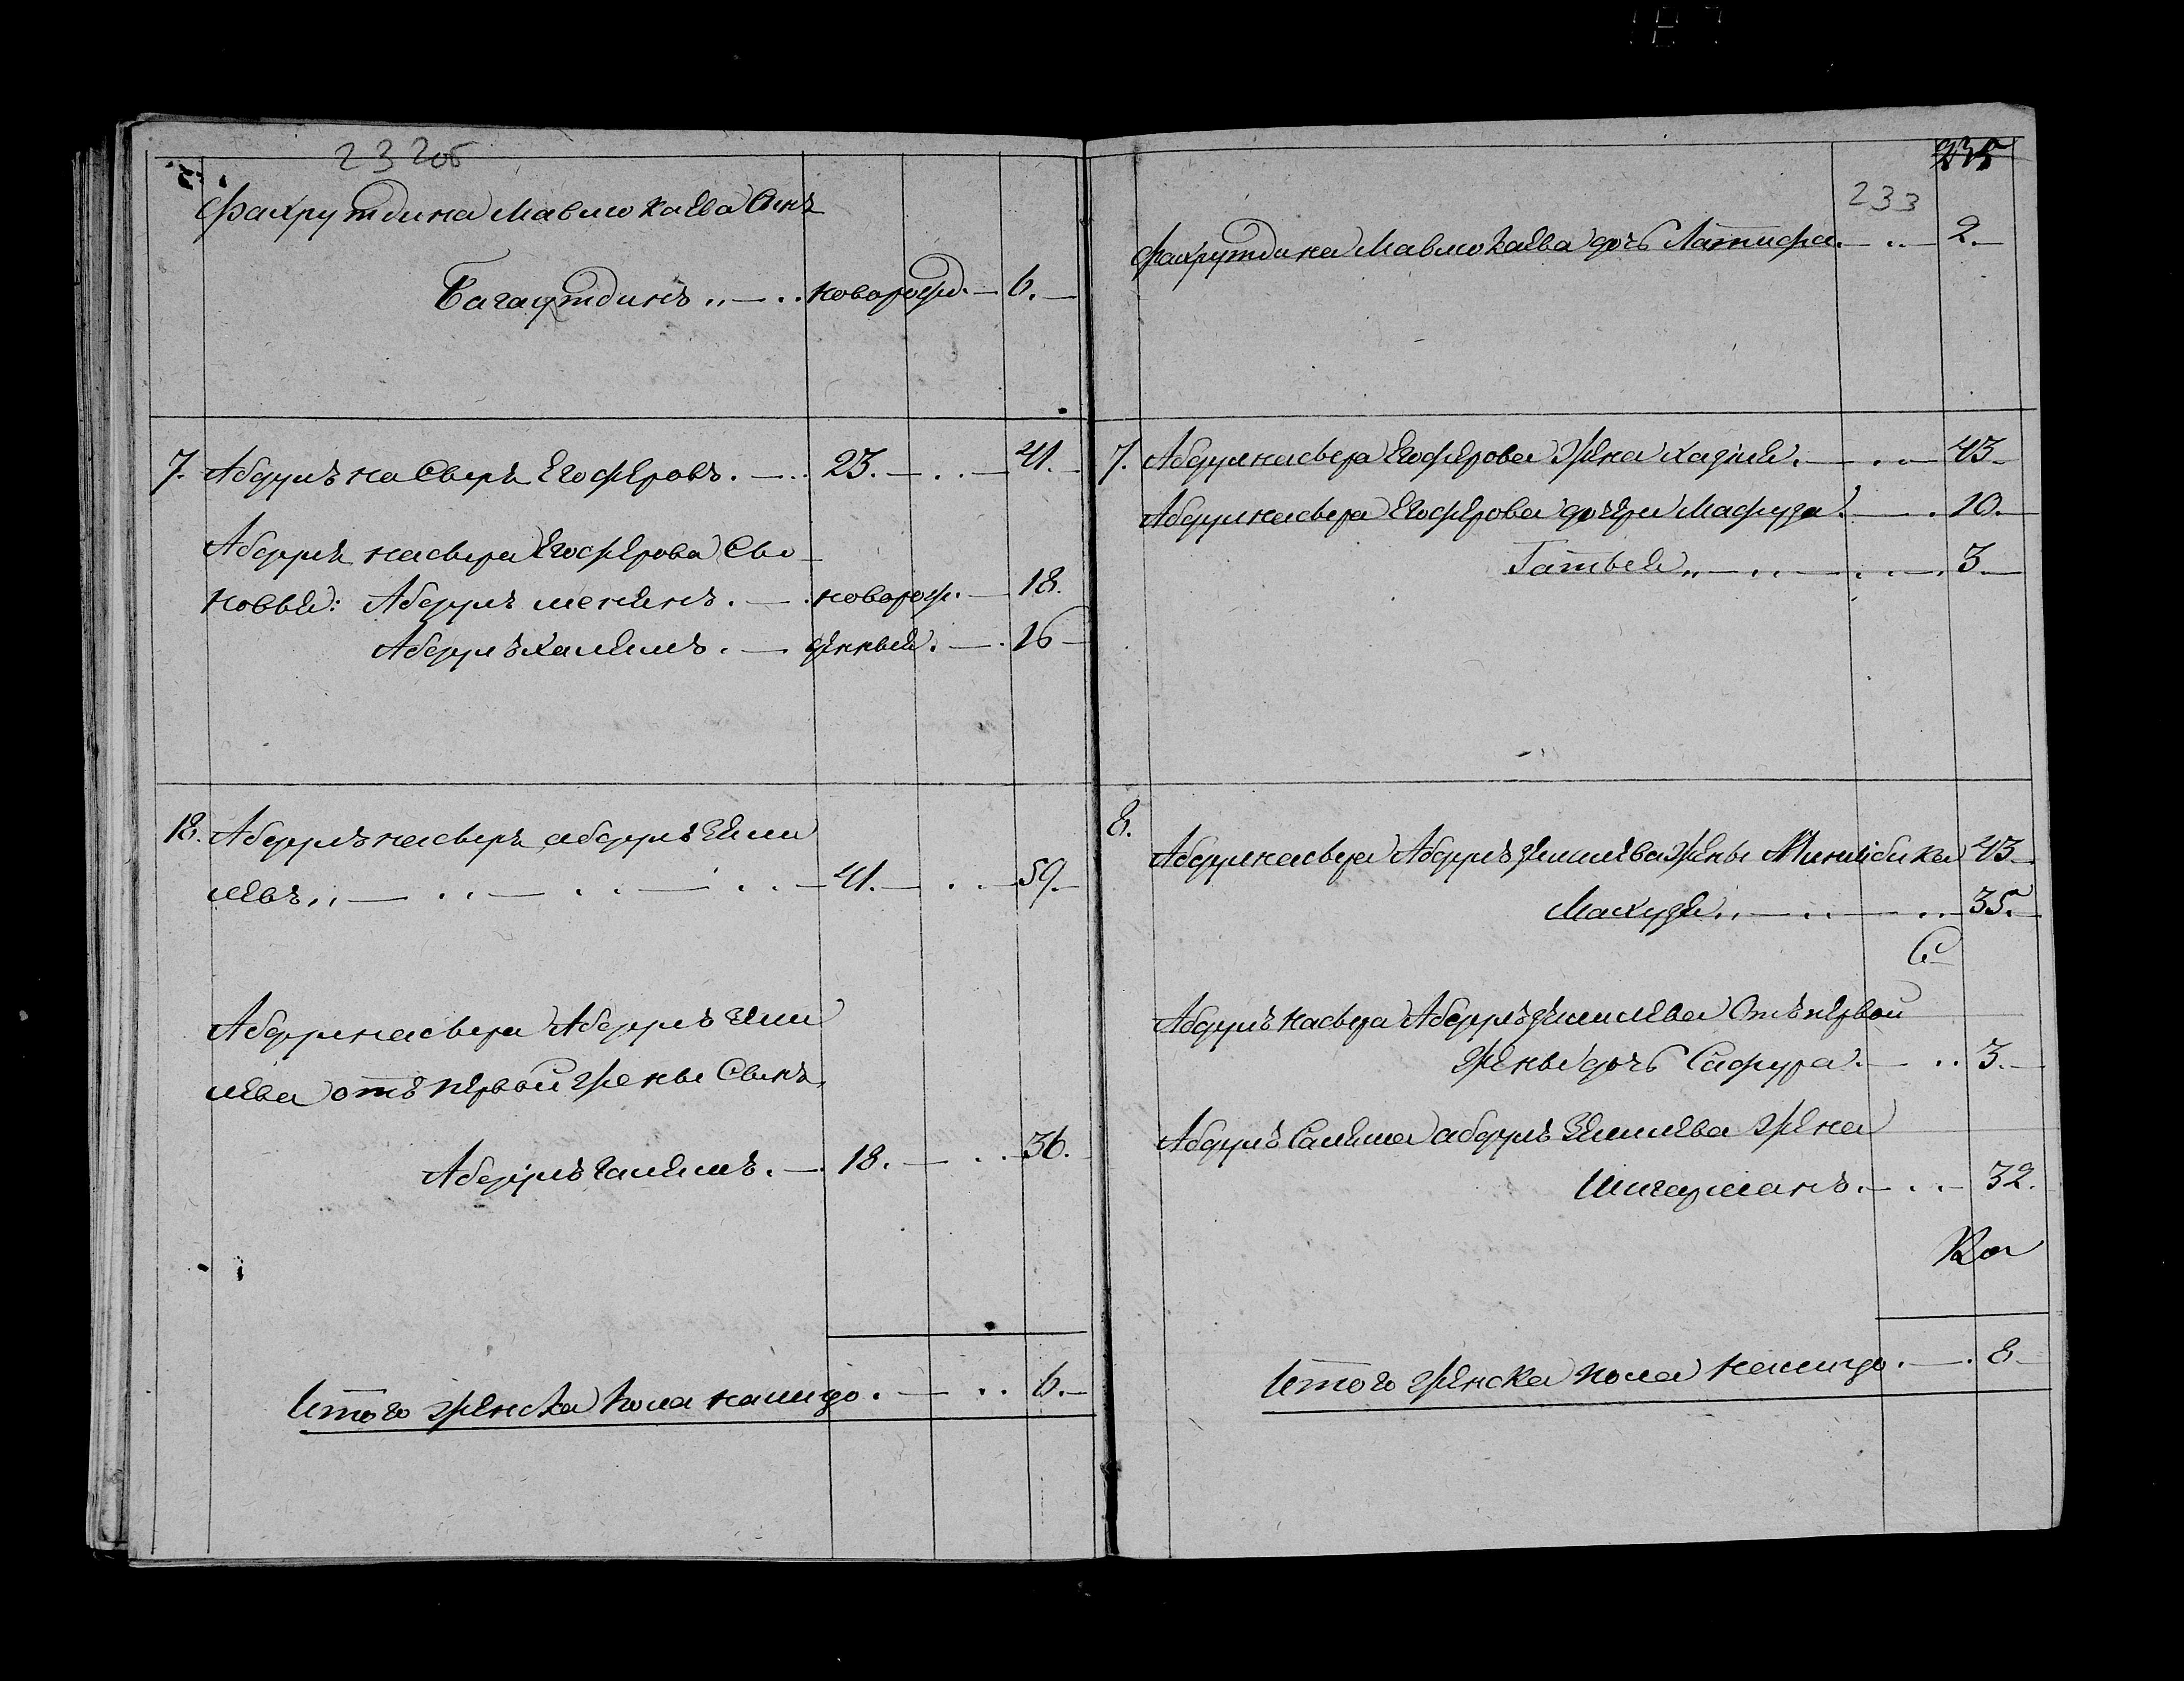 232об
Фахрутдина Мавлюкаева Сынъ
Багаутдинъ новорожд. 6.
7. Абдулъ насыръ Егоферовъ 23. 41.
Абдулъ насыра Егоферова Сы-
новья: Абдулъ менинъ новорож- 18.
Абдулъхалимъ денныя. 16
18. Абдулънасыръ абдулъ Зели
левъ 41. 59.
Абдулнасыра Абдулъ Зели
лева отъ первой жены Сынъ
Абдулъ галимъ. 18. 36.
Итого женска пола налицо. 6.
235
233
Фахрутдина Мавлюкаева дочь Латифа. 2.
7. Абдулнасыра Егоферова Жена Хадия. 43
Абдулнасыра Егоферова дочери Мафуза. 10.
Гатыя 3.
8.
Абдулнасыра Абдулъ зелилева Жены Минлибика 43
Махузя 35.
С
Абдулъ насыра Абдулъ зелилева Отъ первой
жены дочь Сафура. 3.
Абдулъ Салима абдулъ Зелилева Жена
Шигарманъ. 32.
Ка
Итого женска пола налицо. 8